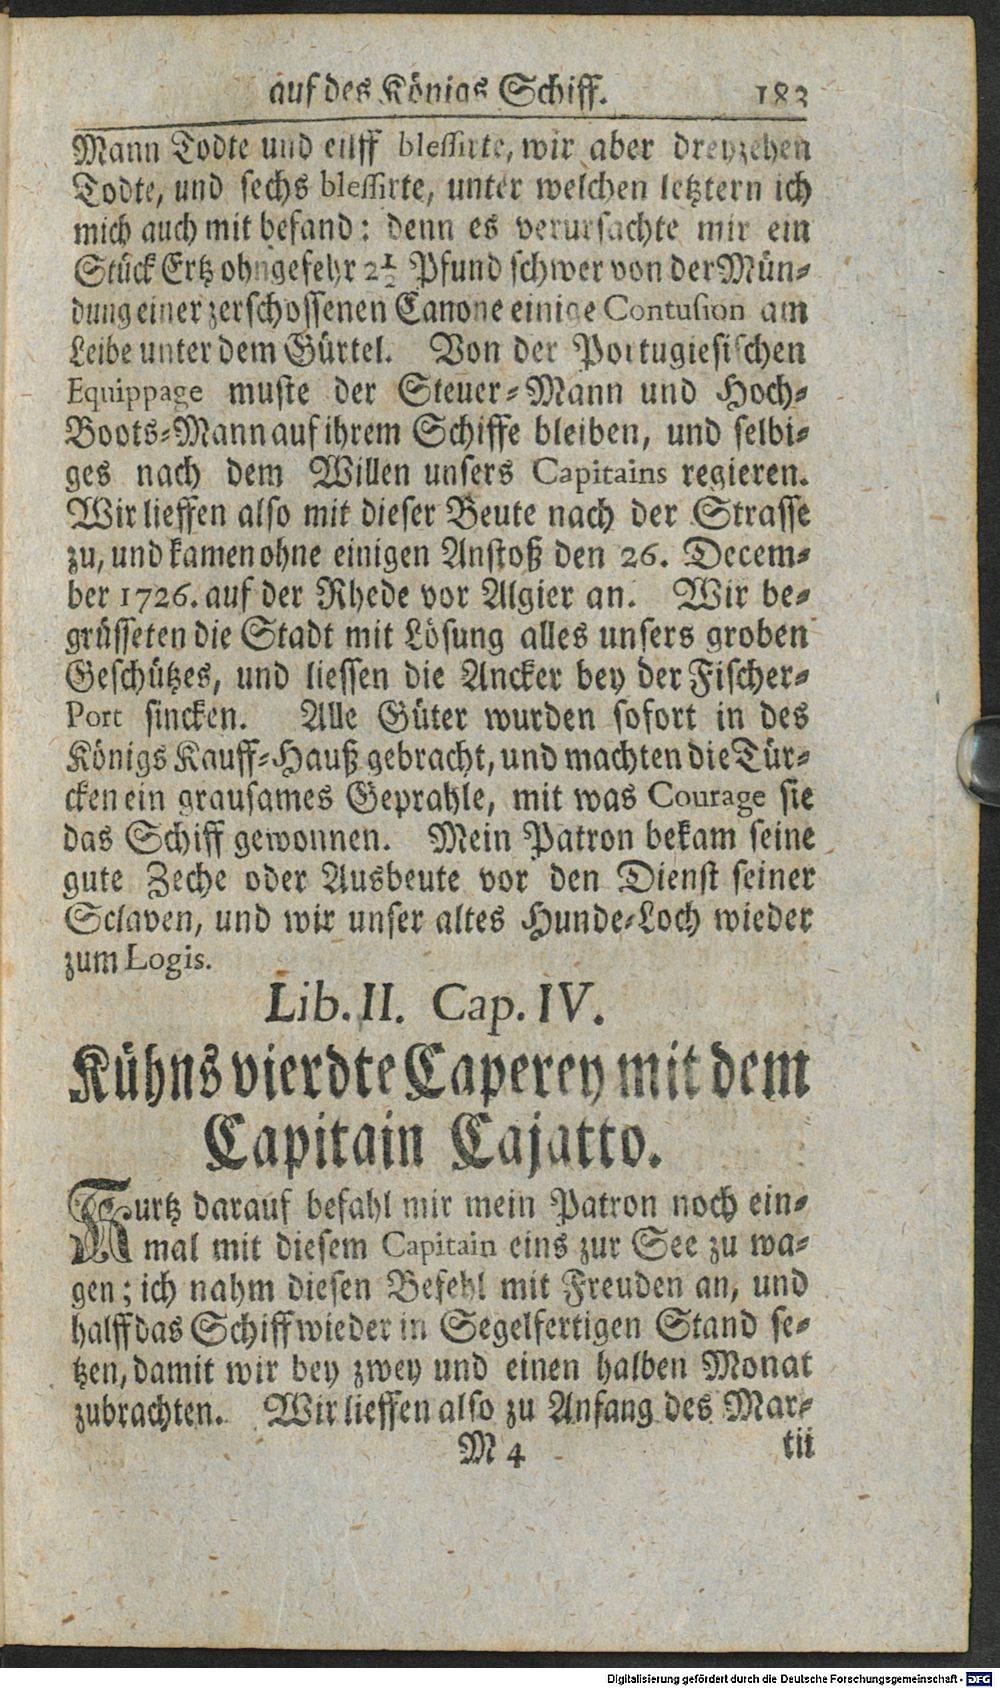 auf des Königs Schiff. 183
Mann Todte und eilff blessirte, wir aber dreyzehen
Todte, und sechs blessirte, unter welchen letztern ich
mich auch mit befand: denn es verursachte mir ein
Stück Ertz ohngefehr 2½ Pfund schwer von der Mün-
dung einer zerschossenen Canone einige Contusion am
Leibe unter dem Gürtel. Von der Portugiesischen
Equippage muste der Steuer-Mann und Hoch-
Boots-Mann auf ihrem Schiffe bleiben, und selbi-
ges nach dem Willen unsers Capitains regieren.
Wir lieffen also mit dieser Beute nach der Strasse
zu, und kamen ohne einigen Anstoß den 26. Decem-
ber 1726. auf der Rhede vor Algier an. Wir be-
grüsseten die Stadt mit Lösung alles unsers groben
Geschützes, und liessen die Ancker bey der Fischer-
Port sincken. Alle Güter wurden sofort in des
Königs Kauff-Hauß gebracht, und machten die Tür-
cken ein grausames Geprahle, mit was Courage sie
das Schiff gewonnen. Mein Patron bekam seine
gute Zeche oder Ausbeute vor den Dienst seiner
Sclaven, und wir unser altes Hunde-Loch wieder
zum Logis.
Lib. II. Cap. IV.
Kühns vierdte Caperey mit dem
Capitain Cajatto.
Kurtz darauf befahl mir mein Patron noch ein-
mal mit diesem Capitain eins zur See zu wa-
gen; ich nahm diesen Befehl mit Freuden an, und
halff das Schiff wieder in Segelfertigen Stand se-
tzen, damit wir bey zwey und einen halben Monat
zubrachten. Wir lieffen also zu Anfang des Mar-
M 4 tii
Digitalisierung gefördert durch die Deutsche Forschungsgemeinschaft - DFG